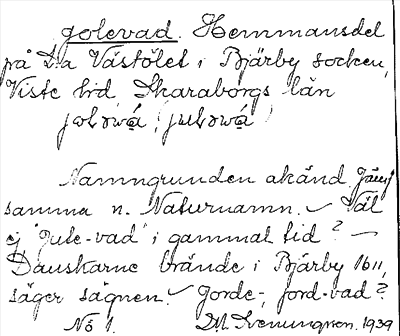 Jolevad. Hemmansdel
på L:a Västölet i Bjärby socken,
Viste hd Skaraborgs län
Namngrunden okänd. Jämf
samma n. Naturnamn. Väl
ej "Jule-vad" i gammal tid? —
Danskarne brände i Bjärby 1611,
säger sägnen. Gorde-, ford-vad?
No 1. 1939